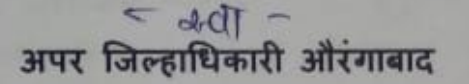 अपर जिल्हाधिकारी औरंगाबाद